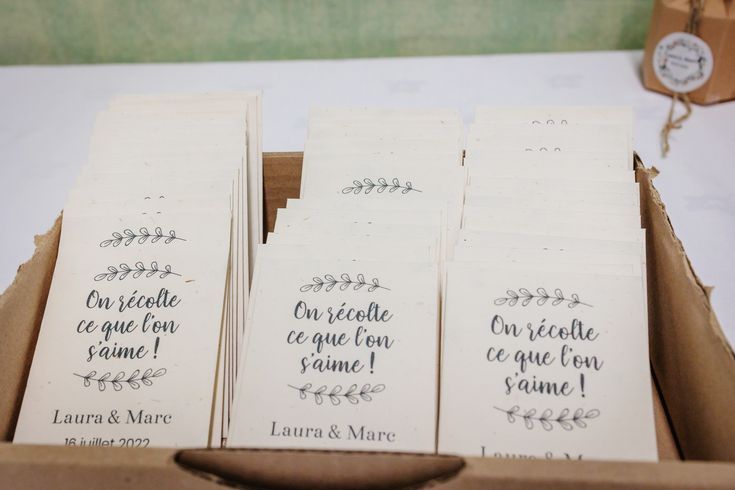 On récolte
ce que l'on
s'aime !
Laura & Marc
16 juillet 2022
On récolte
ce que l'on
s'aime !
Laura & Marc
On récolte
ce que l'on
s'aime !
Laura & Marc